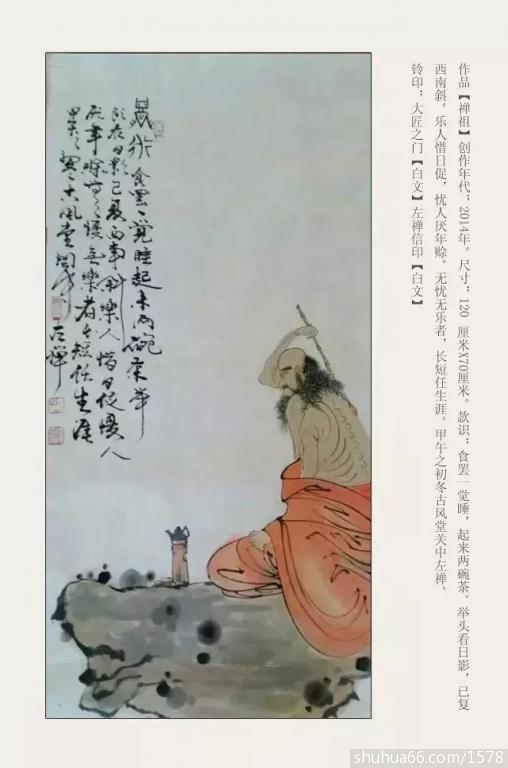 作品【禅祖】创作年代：2014年。尺寸：120 厘米X70厘米。款识：食罢一觉睡，起来两碗茶。举头看日影，已复
西南斜。乐人惜日促，忧人厌年赊。无忧无乐者，长短任生涯。甲午之初冬古风堂关中左禅。
钤印：大匠之门【白文】左禅信印【白文】
食罢一觉睡起来两碗茶举
头看日影已复西南斜乐人惜日促憂人
厌年赊無憂無樂者长短任生涯
左禅
shuhua66.com/1578